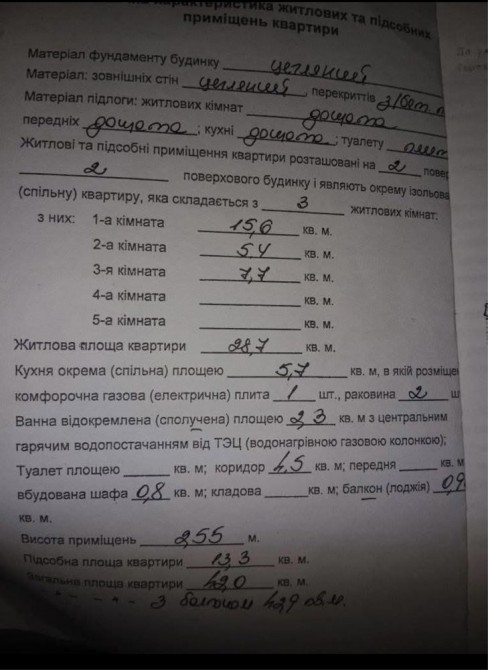 характеристика житлових та підсобних
приміщень квартири
Матеріал фундаменту будинку цегляний
Матеріал: зовнішніх стін цегляний, перекриттів з/бет
Матеріал підлоги: житлових кімнат дощата
передніх дощата; кухні дощата; туалету
Житлові та підсобні приміщення квартири розташовані на 2
2 поверхового будинку і являють окрему
(спільну) квартиру, яка складається з 3 житлових кімнат:
з них: 1-а кімната 15,6 кв. м.
2-а кімната 5,4 кв. м.
3-я кімната 7,7 кв. м.
4-а кімната кв. м.
5-а кімната кв. м.
Житлова площа квартири 28,7 кв. м.
Кухня окрема (спільна) площею 5,7 кв. м, в якій
комфорочна газова (електрична) плита 1 шт., раковина 2
Ванна відокремлена (сполучена) площею 2,3 кв. м з центральним
гарячим водопостачанням від ТЭЦ (водонагрівною газовою колонкою);
Туалет площею кв. м; коридор 4,5 кв. м; передня кв. м
вбудована шафа 0,8 кв. м; кладова кв. м; балкон (лоджія) 0,9
кв. м.
Висота приміщень 2,55 м.
Підсобна площа квартири 13,3 кв. м.
Загальна площа квартири 42,0 кв. м.
З балконом 42,9 кв.м.